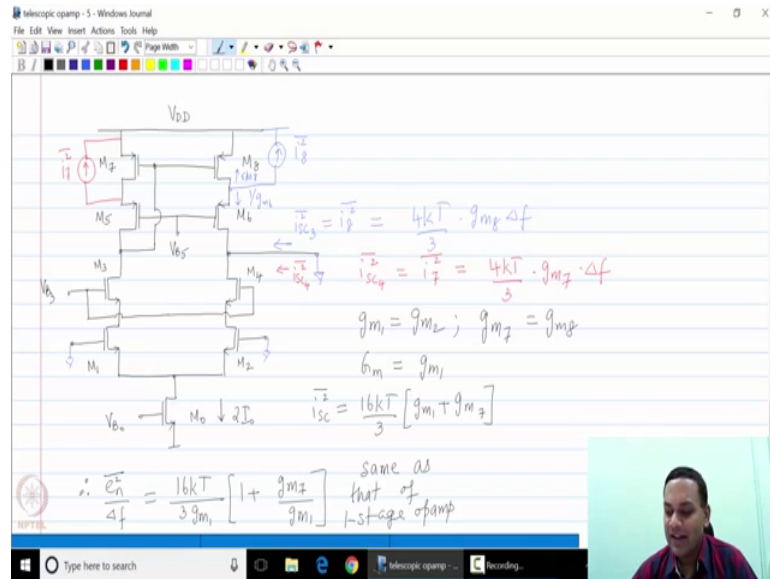 telescopic opamp - 5 - Windows Journal
File Edit View Insert Actions Tools Help
Page Width
B I
VDD
M7
M8
i7²
i8²
rds8
1/gm6
M5
M6
VB5
isc3² = i8² = 4kT/3 · gm8 Δf
isc4²
isc4² = i7² = 4kT/3 · gm7 · Δf
M3
M4
VB3
gm1 = gm2 ; gm7 = gm8
M1
M2
Gm = gm1
VB0
M0 ↓ 2I0
isc² = 16kT/3 [gm1 + gm7]
∴ en²/Δf = 16kT/3gm1 [1 + gm7/gm1]
same as
that of
1-stage opamp
NPTEL
Type here to search
telescopic opamp - ...
Recording...